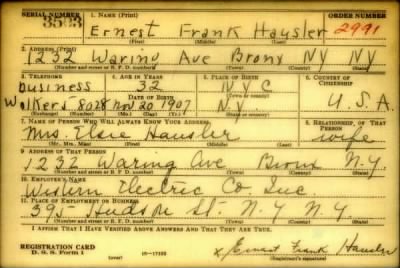 SERIAL NUMBER 1. NAME (Print) ORDER NUMBER
Ernest Frank Hausler 2991
(First) (Middle) (Last)
2. ADDRESS (Print)
1232 Waring Ave Bronx NY NY
(Number and street or R. F. D. number) (Town) (County) (State)
3. TELEPHONE 4. AGE IN YEARS 5. PLACE OF BIRTH 6. COUNTRY OF CITIZENSHIP
Business 32 N Y C
DATE OF BIRTH
Walkers 8028 Nov 20 1907 N.Y. U.S.A.
(Exchange) (Number) (Mo.) (Day) (Yr.) (State or country)
7. NAME OF PERSON WHO WILL ALWAYS KNOW YOUR ADDRESS 8. RELATIONSHIP OF THAT PERSON
Mrs. Elsie Hausler wife
(Mr., Mrs., Miss) (First) (Middle) (Last)
9. ADDRESS OF THAT PERSON
1232 Waring Ave Bronx N.Y.
(Number and street or R. F. D. number) (Town) (County) (State)
10. EMPLOYER'S NAME
Western Electric Co Inc
11. PLACE OF EMPLOYMENT OR BUSINESS
395 Hudson St. N.Y N.Y.
(Number and street or R. F. D. number) (Town) (County) (State)
I AFFIRM THAT I HAVE VERIFIED ABOVE ANSWERS AND THAT THEY ARE TRUE.
REGISTRATION CARD
D. S. S. Form 1 (over) x Ernest Frank Hausler
(Registrant's signature)